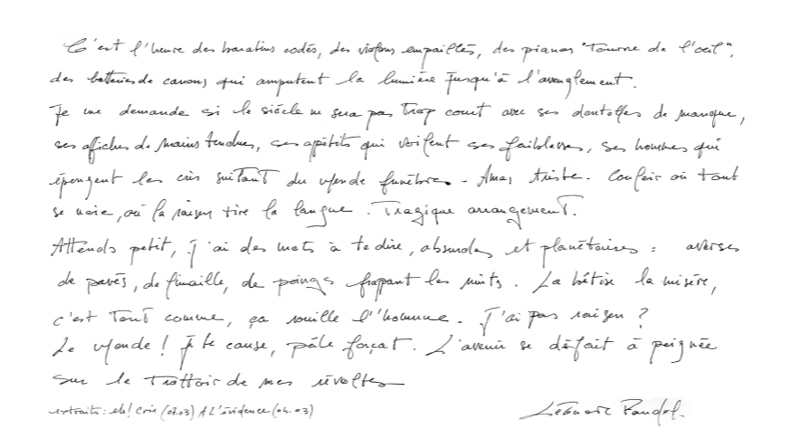 C'est l'heure des baratins codés, des violons empaillés, des pianos "Tourne de l'oeil",
des batteries de canons qui amputent la lumière jusqu'à l'aveuglement.
Je me demande si le siècle ne sera pas trop court avec ses dentelles de manque,
ses affiches de mains tendues, ses apétits qui voilent ses faiblesses, ses hommes qui
épongent les cris suitant du monde funèbre. Amas triste. Couloir où tout
se noie, où la raison tire la langue. Tragique arrangement.
Attends petit, j'ai des mots à te dire, absurdes et planétaires : averses
de pavés, de finaille, de poings frappant les nuits. La bêtise la misère,
c'est tout comme, ça rouille l'homme. J'ai pas raison ?
Le monde ! je te cause, pâle forçat. L'avenir se défait à peignée
sur le trottoir de mes révoltes
extraits : eh! Crie (07.03) A l'évidence (04.03)